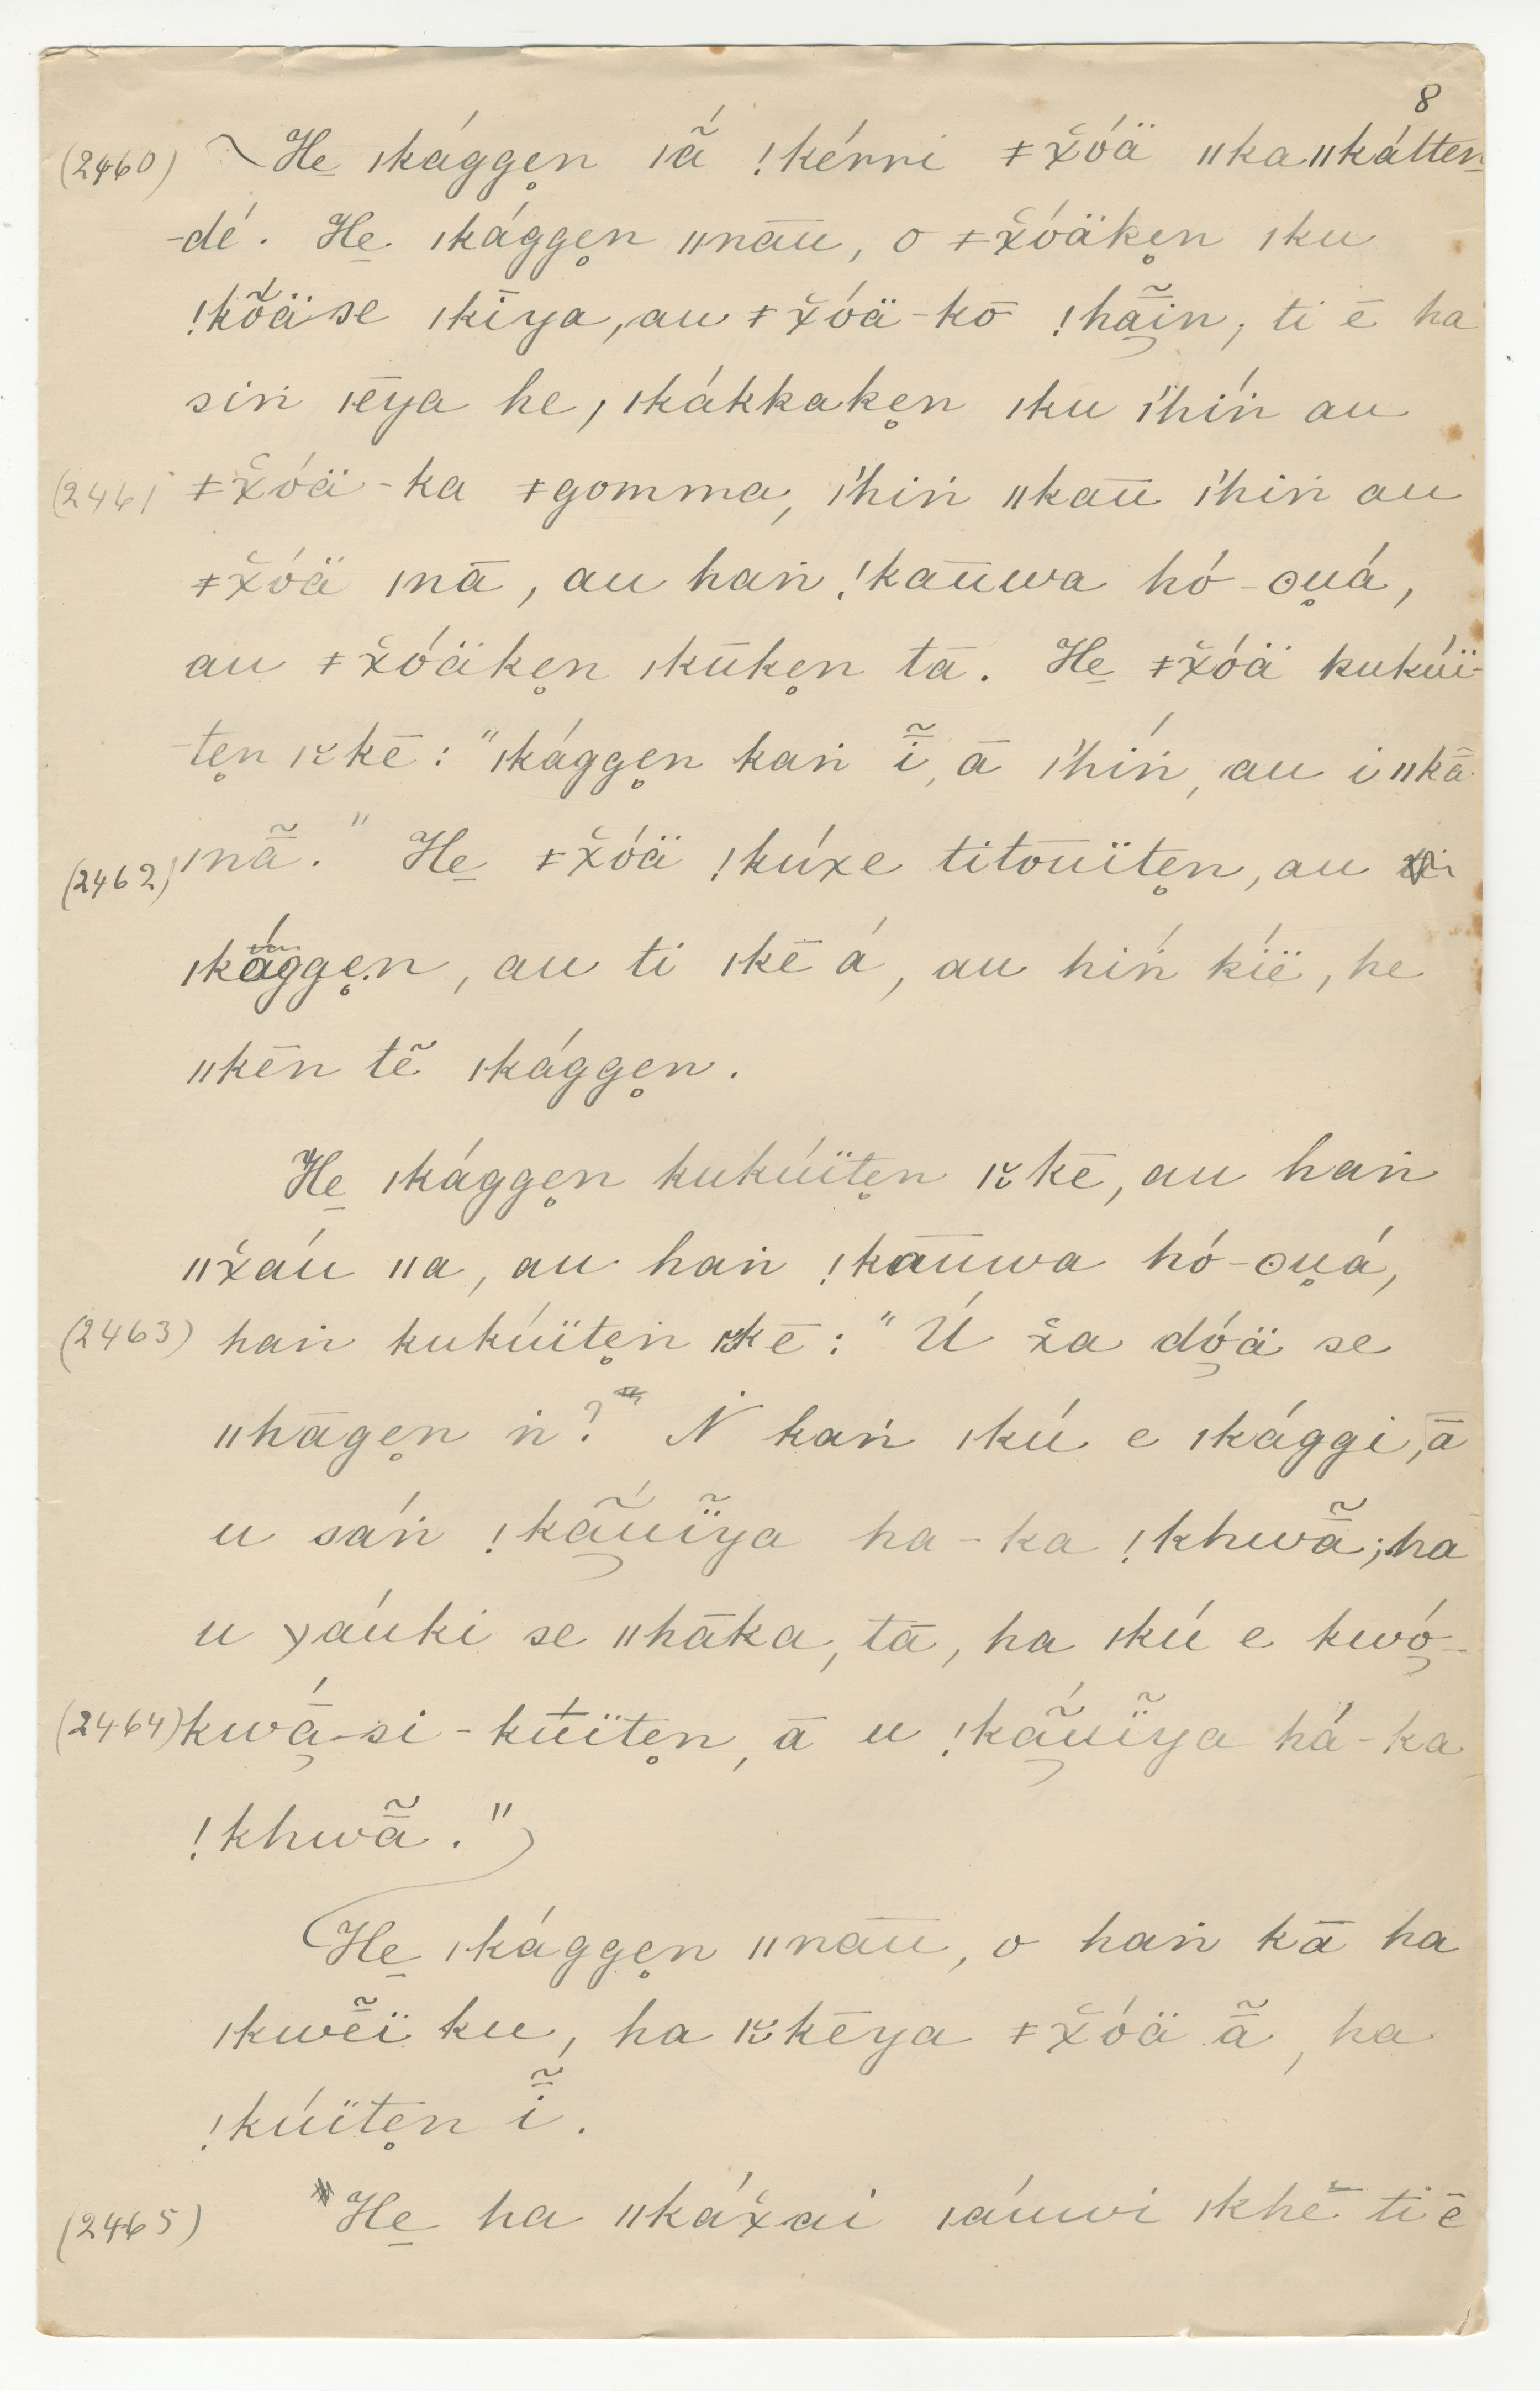 8
(2460) He̲ ǀkágge̥n ǀã́ ǃkérri ǂx̌óä ǁkaǁkátten̲
-dé. He̲ ǀkágge̥n ǁnau̅, o ǂx̌óäke̥n ǀku
ǃkõ̌äse ǀkīya, au ǂx̌óä-kō ǃhã̱̄in, ti ē ha
siṅ ǀēya he, ǀkákkake̥n ǀku ı̍híṅ au
(2461 ǂx̌óä-ka ǂgomma, ı̍hiṅ ǁkau̅ ı̍hiṅ au
ǂx̌óä ǀnā, au haṅ ǃkau̅wa hó-ʘu̥á,
au ǂx̌óäke̥n ǀkūke̥n tā. He̲ ǂx̌óä kukúï-
te̥n ǀx̆kē: "ǀkágge̥n kaṅ ĩ̄, ā ı̍híṅ, au i ǁkā
(2462) ǀnã̄." He̲ ǂx̌óä ǃkúxe titōuïte̥n, au
ǀkágge̥n, au ti ǀkē á, au híṅ kíë, he
ǁkēn tẽ ǀkágge̥n.
He̲ ǀkágge̥n kukúïte̥n ǀx̆kē, au haṅ
ǁx̌áu ǁa, au haṅ ǃkau̅wa hó-ʘu̥á,
(2463) haṅ kukúïte̥ṅ ǀx̆kē: "Ú x̌a dó̱ä se
ǁhāge̥n ṅ? Ṅ kaṅ ǀkú e ǀkággi, ā
u sáṅ ǃkã̱́uĩ̈ya ha-ka ǃkhwã̄; ha
u yáuki se ǁhāka, tā, ha ǀkú e kwó̱-
(2464) kwā̱́-si-kúïte̥n, ā u ǃkã̱́uĩ̈ya há-ka
ǃkhwã̄."
He̲ ǀkágge̥n ǁnau̅, o haṅ kā ha
ǀkwẽ̄ï ku, ha ǀx̆kēya ǂx̌óä ã̄, ha
ǃkúïte̥n ĩ̄.
(2465) He̲ ha ǁkáx̌ai ǀáuwi ǀkhē ti ē